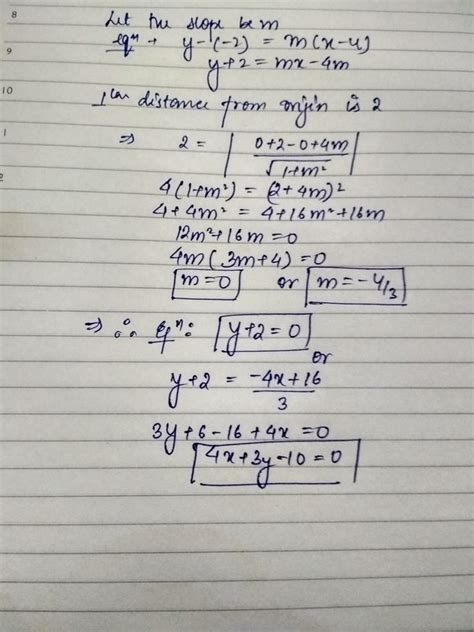 8
Let the slope be m
9
eqⁿ → y-(-2) = m(x-4)
y+2 = mx-4m
10
1lar distance from origin is 2
1
⇒ 2 = | 0+2-0+4m / √1+m² |
2
4(1+m²) = (2+4m)²
4+4m² = 4+16m²+16m
12m²+16m=0
4m(3m+4)=0
m=0 or m=-4/3
⇒ ∴ eqⁿ: y+2=0
or
y+2 = -4x+16 / 3
3y+6-16+4x=0
4x+3y-10=0